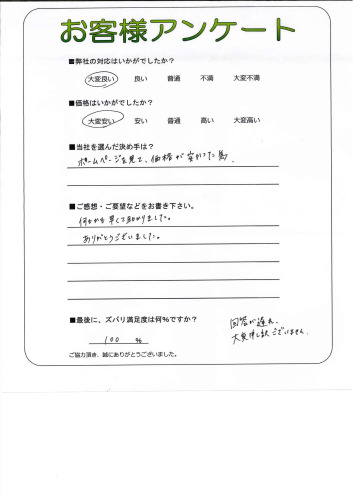 お客様アンケート
■弊社の対応はいかがでしたか？
大変良い 良い 普通 不満 大変不満
■価格はいかがでしたか？
大変安い 安い 普通 高い 大変高い
■当社を選んだ決め手は？
ホームページを見て、価格が安かった為.
■ご感想・ご要望などをお書き下さい。
何もかも早くて助かりました。
ありがとうございました。
■最後に、ズバリ満足度は何%ですか？
100 %
回答が遅れ、
大変申し訳ございません.
ご協力頂き、誠にありがとうございました。